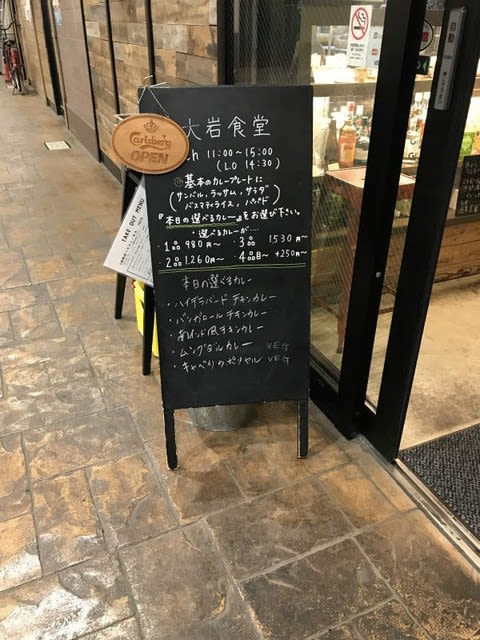 大岩食堂
Carlsberg
OPEN
ch 11:00〜15:00
(LO 14:30)
基本のカレープレートに
(サンバル, ラッサム, サラダ
バスマティライス, パパド)
『本日の選べるカレー』をお選び下さい。
・選べるカレーが....
・1品 980円〜 ・3品 1530円〜
・2品 1,260円〜 ・4品目〜 +250円〜
本日の選べるカレー
・ハイデラバード チキンカレー
・バンガロールチキンカレー
・南インド風チキンカレー
・ムングダルカレー VEG
・キャベツのポリヤル VEG
TAKE OUT MENU